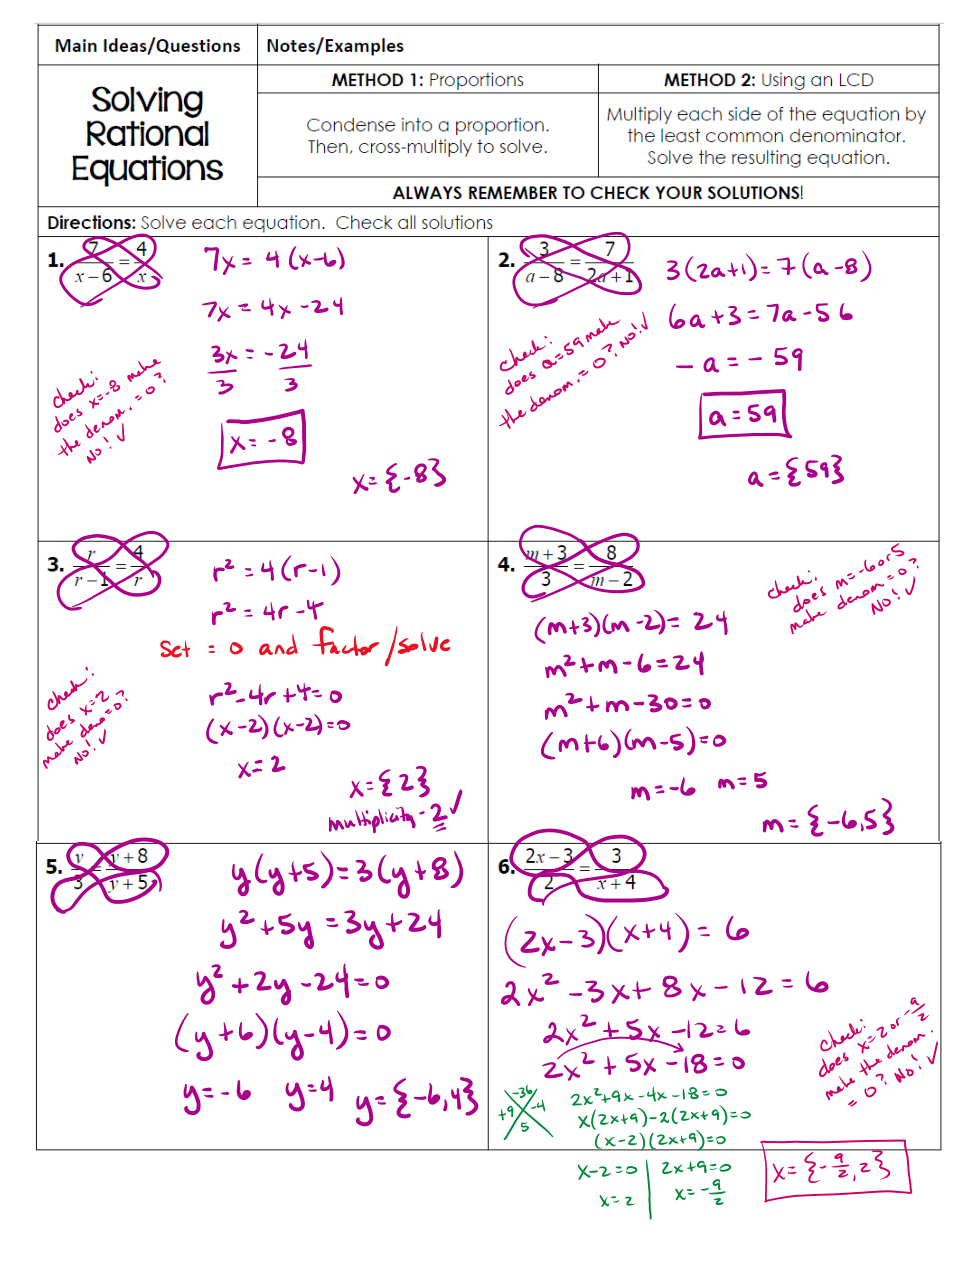 Main Ideas/Questions
Notes/Examples
Solving
Rational
Equations
METHOD 1: Proportions
METHOD 2: Using an LCD
Condense into a proportion.
Then, cross-multiply to solve.
Multiply each side of the equation by
the least common denominator.
Solve the resulting equation.
ALWAYS REMEMBER TO CHECK YOUR SOLUTIONS!
Directions: Solve each equation. Check all solutions
1. 7/(x−6) = 4/x
7x = 4(x-6)
7x = 4x -24
3x = -24
3 3
x = -8
x = {-8}
check:
does x=-8 make
the denom. = 0?
No! ✓
2. 3/(a−8) = 7/(2a+1)
3(2a+1) = 7(a-8)
6a+3 = 7a-56
-a = -59
a = 59
a = {59}
check:
does a=59 make
the denom. = 0? No! ✓
3. r/(r−1) = 4/r
r² = 4(r-1)
r² = 4r-4
Set = 0 and factor/solve
r²-4r+4=0
(x-2)(x-2)=0
x=2
x={2}
multiplicity-2 ✓
check:
does x=2
make deno=0?
No! ✓
4. (m+3)/3 = 8/(m−2)
(m+3)(m-2)=24
m²+m-6=24
m²+m-30=0
(m+6)(m-5)=0
m=-6 m=5
m={-6,5}
check:
does m=-6 or 5
make denom=0?
No! ✓
5. y/3 = (y+8)/(y+5)
y(y+5)=3(y+8)
y²+5y=3y+24
y²+2y-24=0
(y+6)(y-4)=0
y=-6 y=4 y={-6,4}
6. (2x−3)/2 = 3/(x+4)
(2x-3)(x+4) = 6
2x²-3x+8x-12=6
2x²+5x-12=6
2x²+5x-18=0
-36
+9 -4
5
2x²+9x-4x-18=0
x(2x+9)-2(2x+9)=0
(x-2)(2x+9)=0
x-2=0 2x+9=0
x=2 x=-9/2
x={-9/2,2}
check:
does x=2 or -9/2
make the denom.
=0? No! ✓